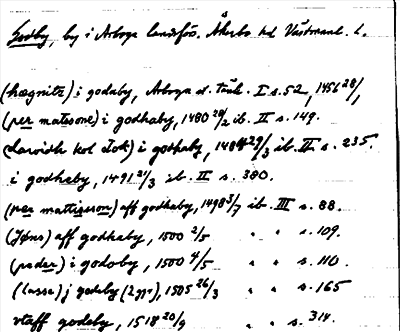 Godby, by i Arboga landsförs. Åkerbo hd Västmanl. l.
(hægnitz) i godaby, Arboga st. tänk. I s. 52, 1456 28/1
(per matssone) i godhaby, 1480 20/2 ib. II s. 149.
(Lawidh kol dok) i godhaby, 1484 29/3 ib. II s. 235.
i godhaby, 1491 21/3 ib. II s. 380.
(per mattisson) aff godhaby, 1498 3/7 ib. III s. 88.
(Jöns) aff godhaby, 1500 2/5 " " s. 109.
(peder) i godoby, 1500 4/5 " " s. 110.
(lasse) j godeby (2 ggr), 1505 26/3 " " s. 165
vtaff godeby, 1518 20/9 " " s. 314.